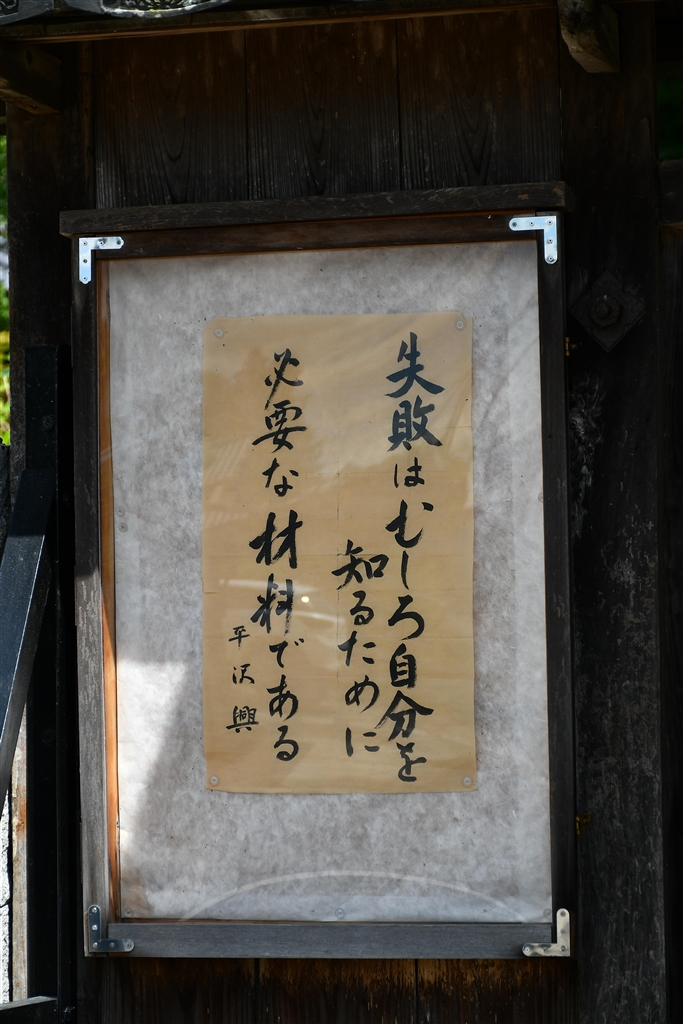 失敗はむしろ自分を
知るために
必要な材料である
平沢興